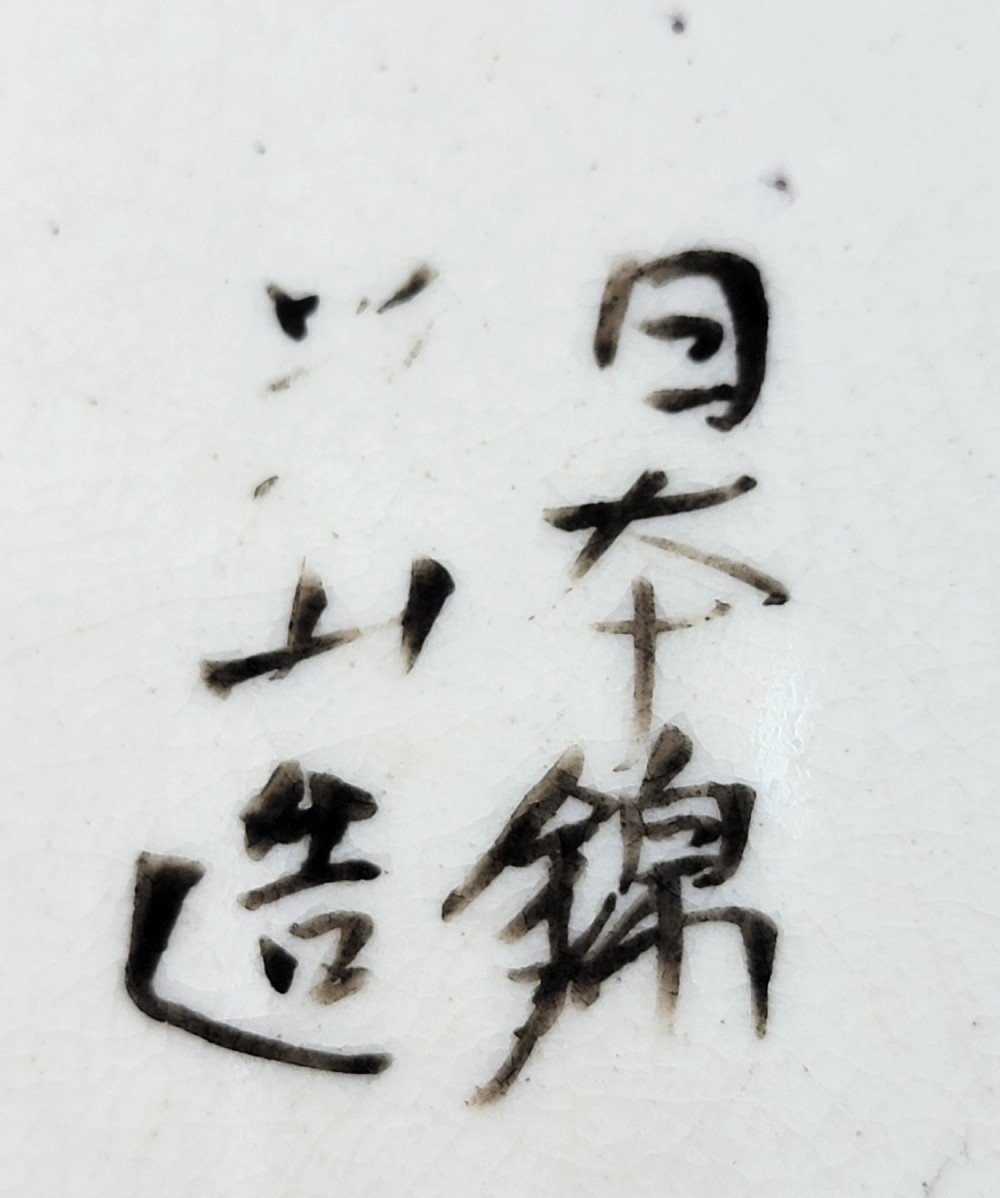 日本錦
山造